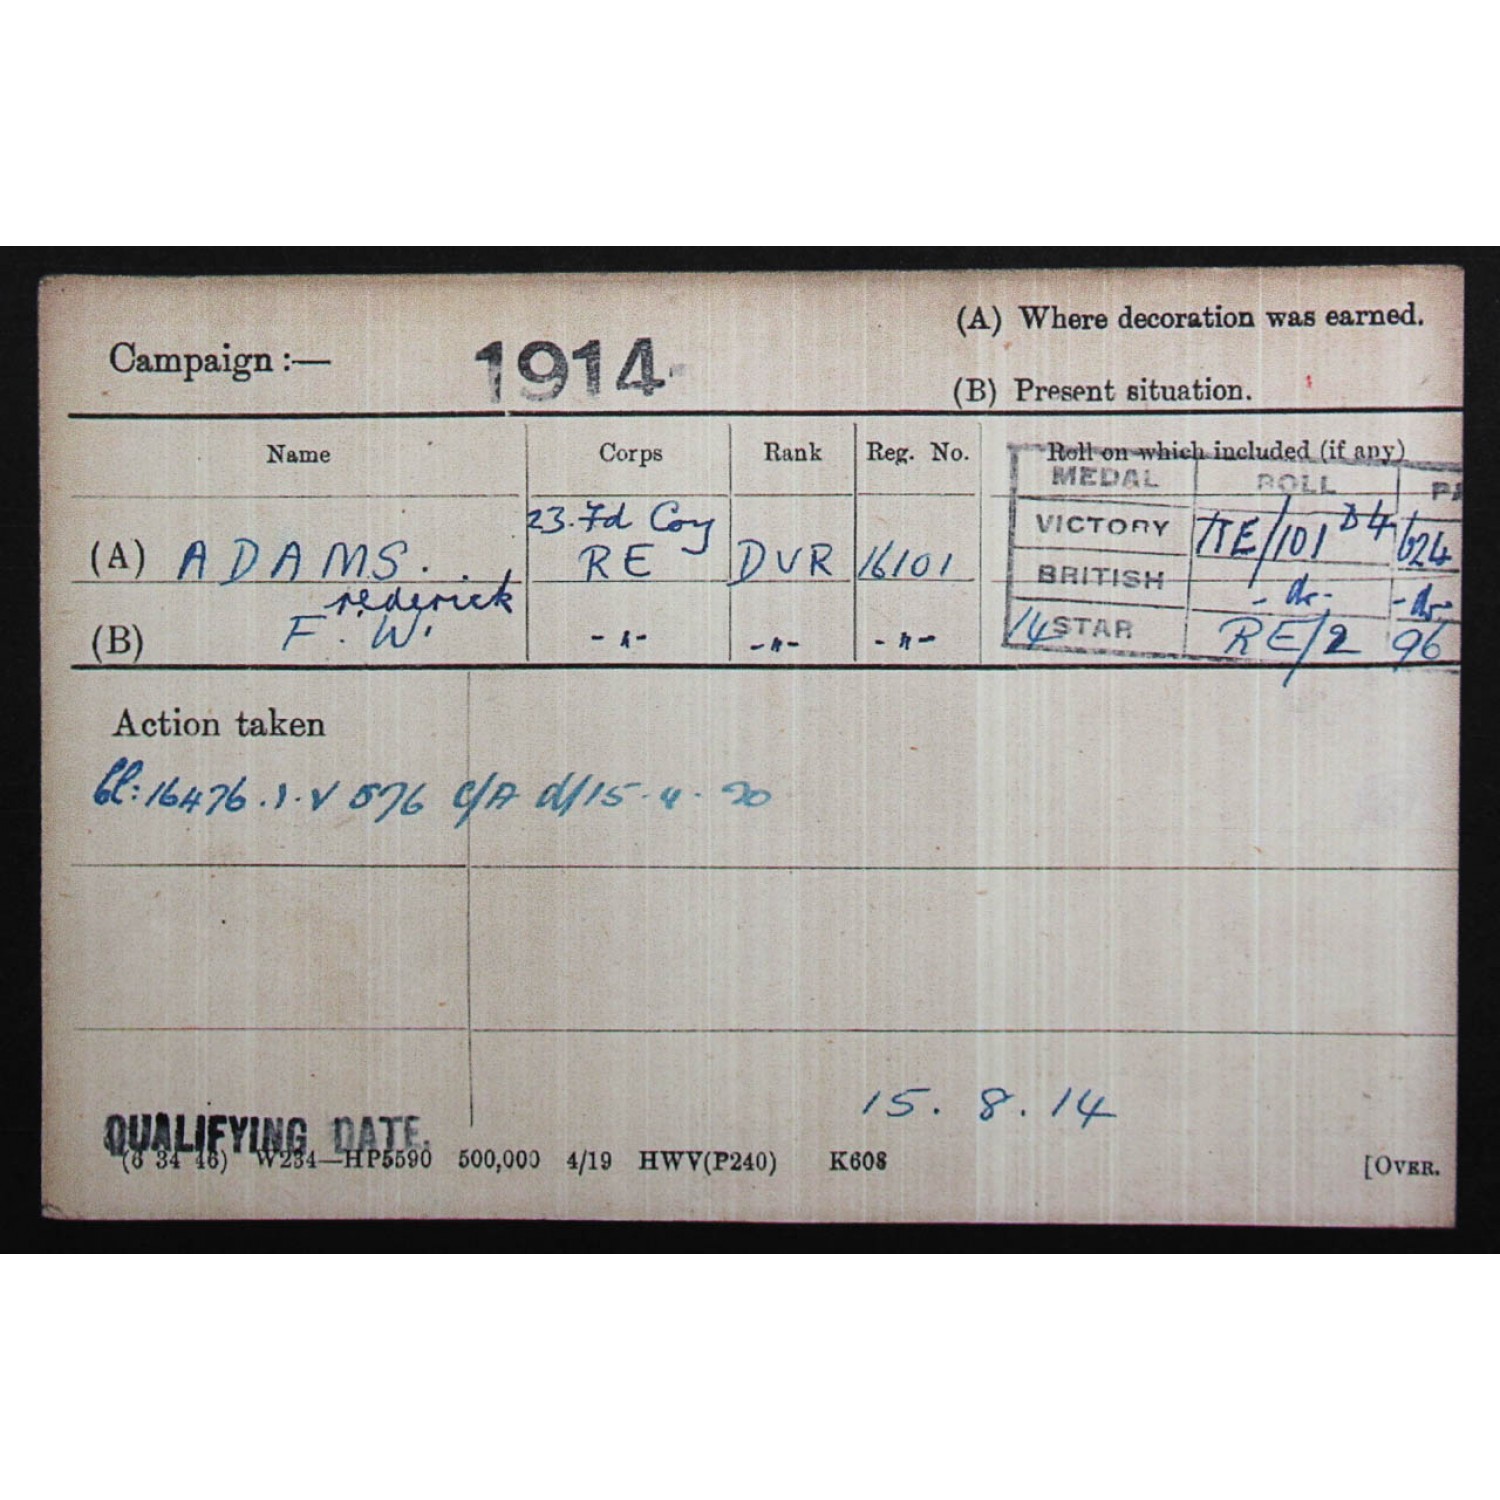 (A) Where decoration was earned.
Campaign :— 1914
(B) Present situation.
Name Corps Rank Reg. No. Roll on which included (if any)
MEDAL ROLL PA
23. Fd Coy
(A) ADAMS. RE DVR 16101 VICTORY RE/101 B4 624
rederick
BRITISH - do - - do -
(B) F. W. - " - - " - - " - 14 STAR RE/2 96
Action taken
16476 576 C/A d/15.4.20
15. 8. 14
QUALIFYING DATE.
(6 34 46) W234—HP5590 500,000 4/19 HWV(P240) K608 [OVER.